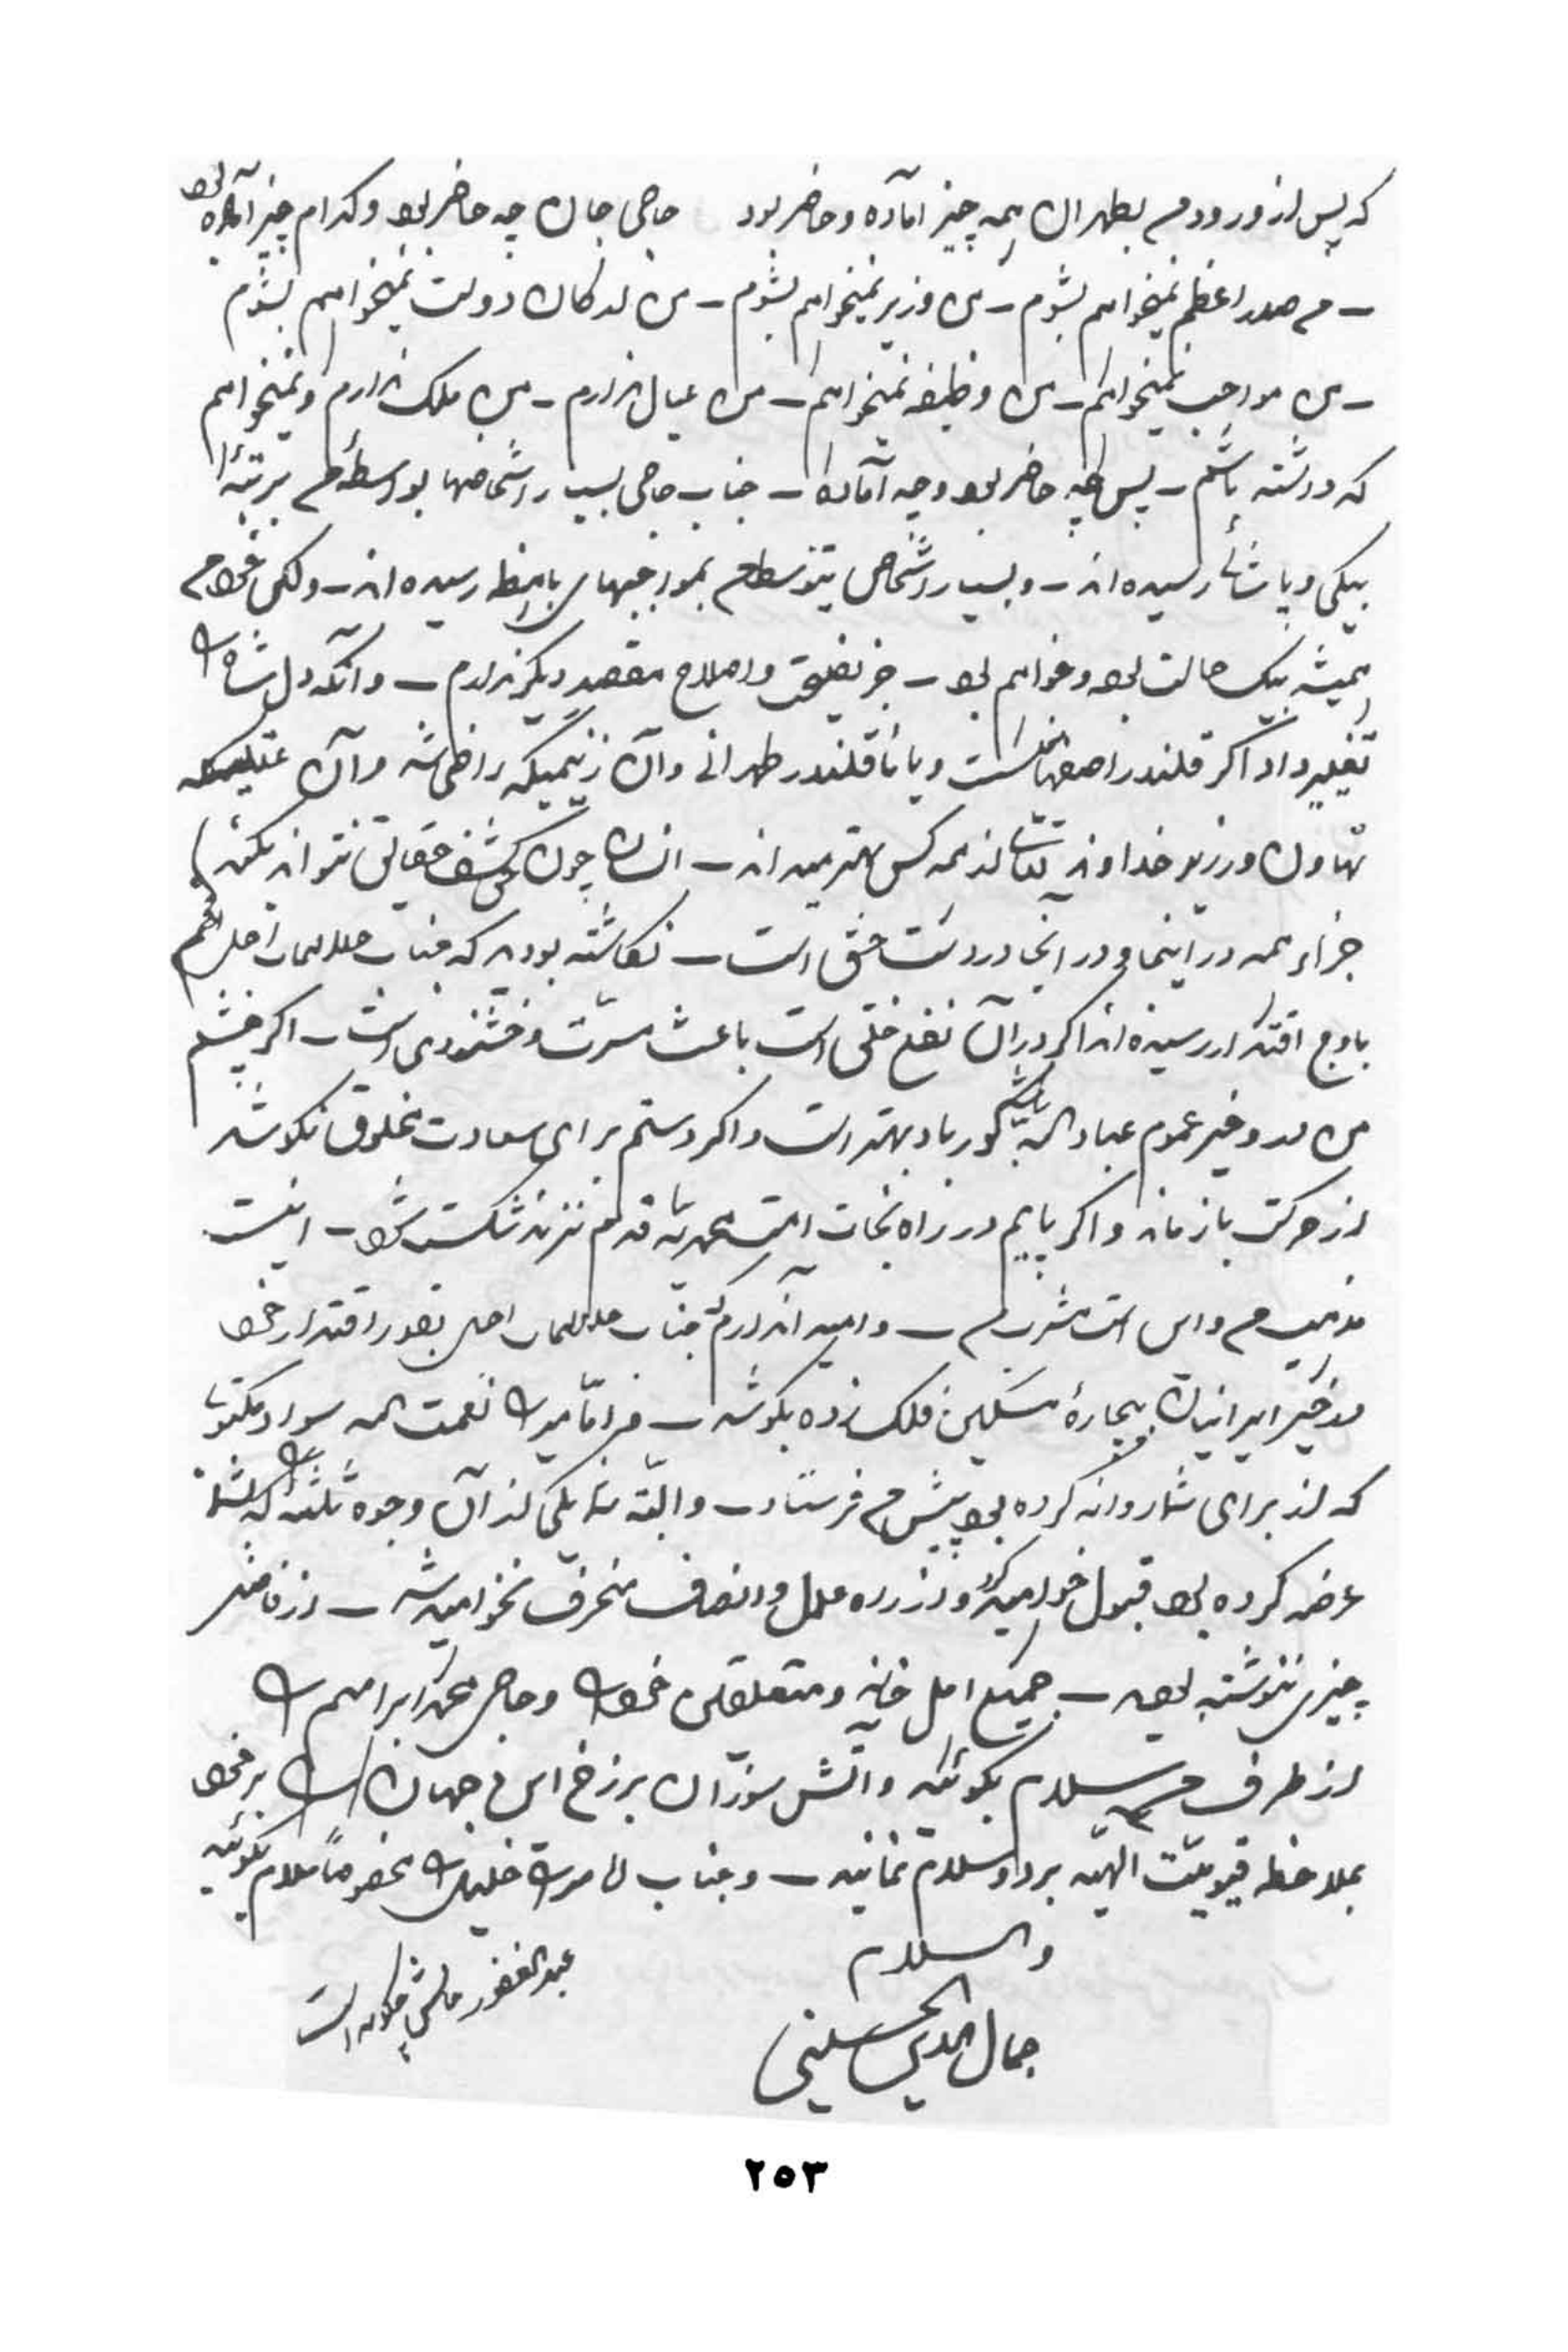 که پس از ورود من بطهران همه چیز آماده و حاضر بود حاجی جان چه حاضر بود و کدام چیز آماده بود
– من صدر اعظم نمیخواهم بشوم – من وزیر نمیخواهم بشوم – من ارکان دولت نمیخواهم بشوم
– من مواجب نمیخواهم – من وظیفه نمیخواهم – من عیال ندارم – من ملک ندارم و نمیخواهم
که داشته باشم – پس چه حاضر بود و چه آماده – جناب حاجی بسیار اشخاصها بواسطهٔ من برتبهٔ
بیکی و پاشائی رسیده اند – و بسیار اشخاص بتوسط من بمواجبهای باهظه رسیده اند – ولکن خود من
همیشه بیک حالت بوده و خواهم بود – جز نصیحت و اصلاح مقصد دیگر ندارم – و آنکه دل شما را
تغییر داد اگر قلندر اصفهانی است و یا ناقلندر طهرانی و آن زنیمیکه راضی شد و آن
تهاون ورزید خداوند تعالی از همه کس بهتر میداند – انسان چون کشف حقایق نتواند بکند
جزاء همه در اینجا و در آنجا در دست حق است – نگاشته بودید که جناب اجل
باوج اقتدار رسیده اند اگر در آن نفع خلق است باعث مسرت و خشنودی است – اگر چشم
من در خیر عموم عباد الله نباشد کور باد بهتر است و اگر دستم برای سعادت مخلوق نکوشد
از حرکت باز ماند و اگر پایم در راه نجات امت محمدیه قدم نزند شکسته شود – اینست
مذهب من و این است مشرب من – و امید آن دارم که جناب اجل بقدر اقتدار خود
در خیر ایرانیان بیچارهٔ مسکین فلک زده بکوشد – میرزا نعمت الله سواد مکتوب
که از برای شما روانه کرده بود پیش من فرستاد – و البته شما یکی از آن وجوه ثلثه را که بشما
عرضه کرده بود قبول خواهید کرد و از راه عدل و انصاف منحرف نخواهید شد – از فاضل
چیزی ننوشته بودید – جمیع اهل خانه و متعلقین خود را و حاجی محمد ابراهیم را
از طرف من سلام بگوئید و آتش سوزان برزخ این جهان را بر خود
بملاحظه قیومیت الهیه برد و سلام نمائید – و جناب میرزا خلیل را مخصوصاً سلام بگوئید
والسلام
جمال الدین الحسینی
عبدالغفور حالش چگونه است
٢٥٣